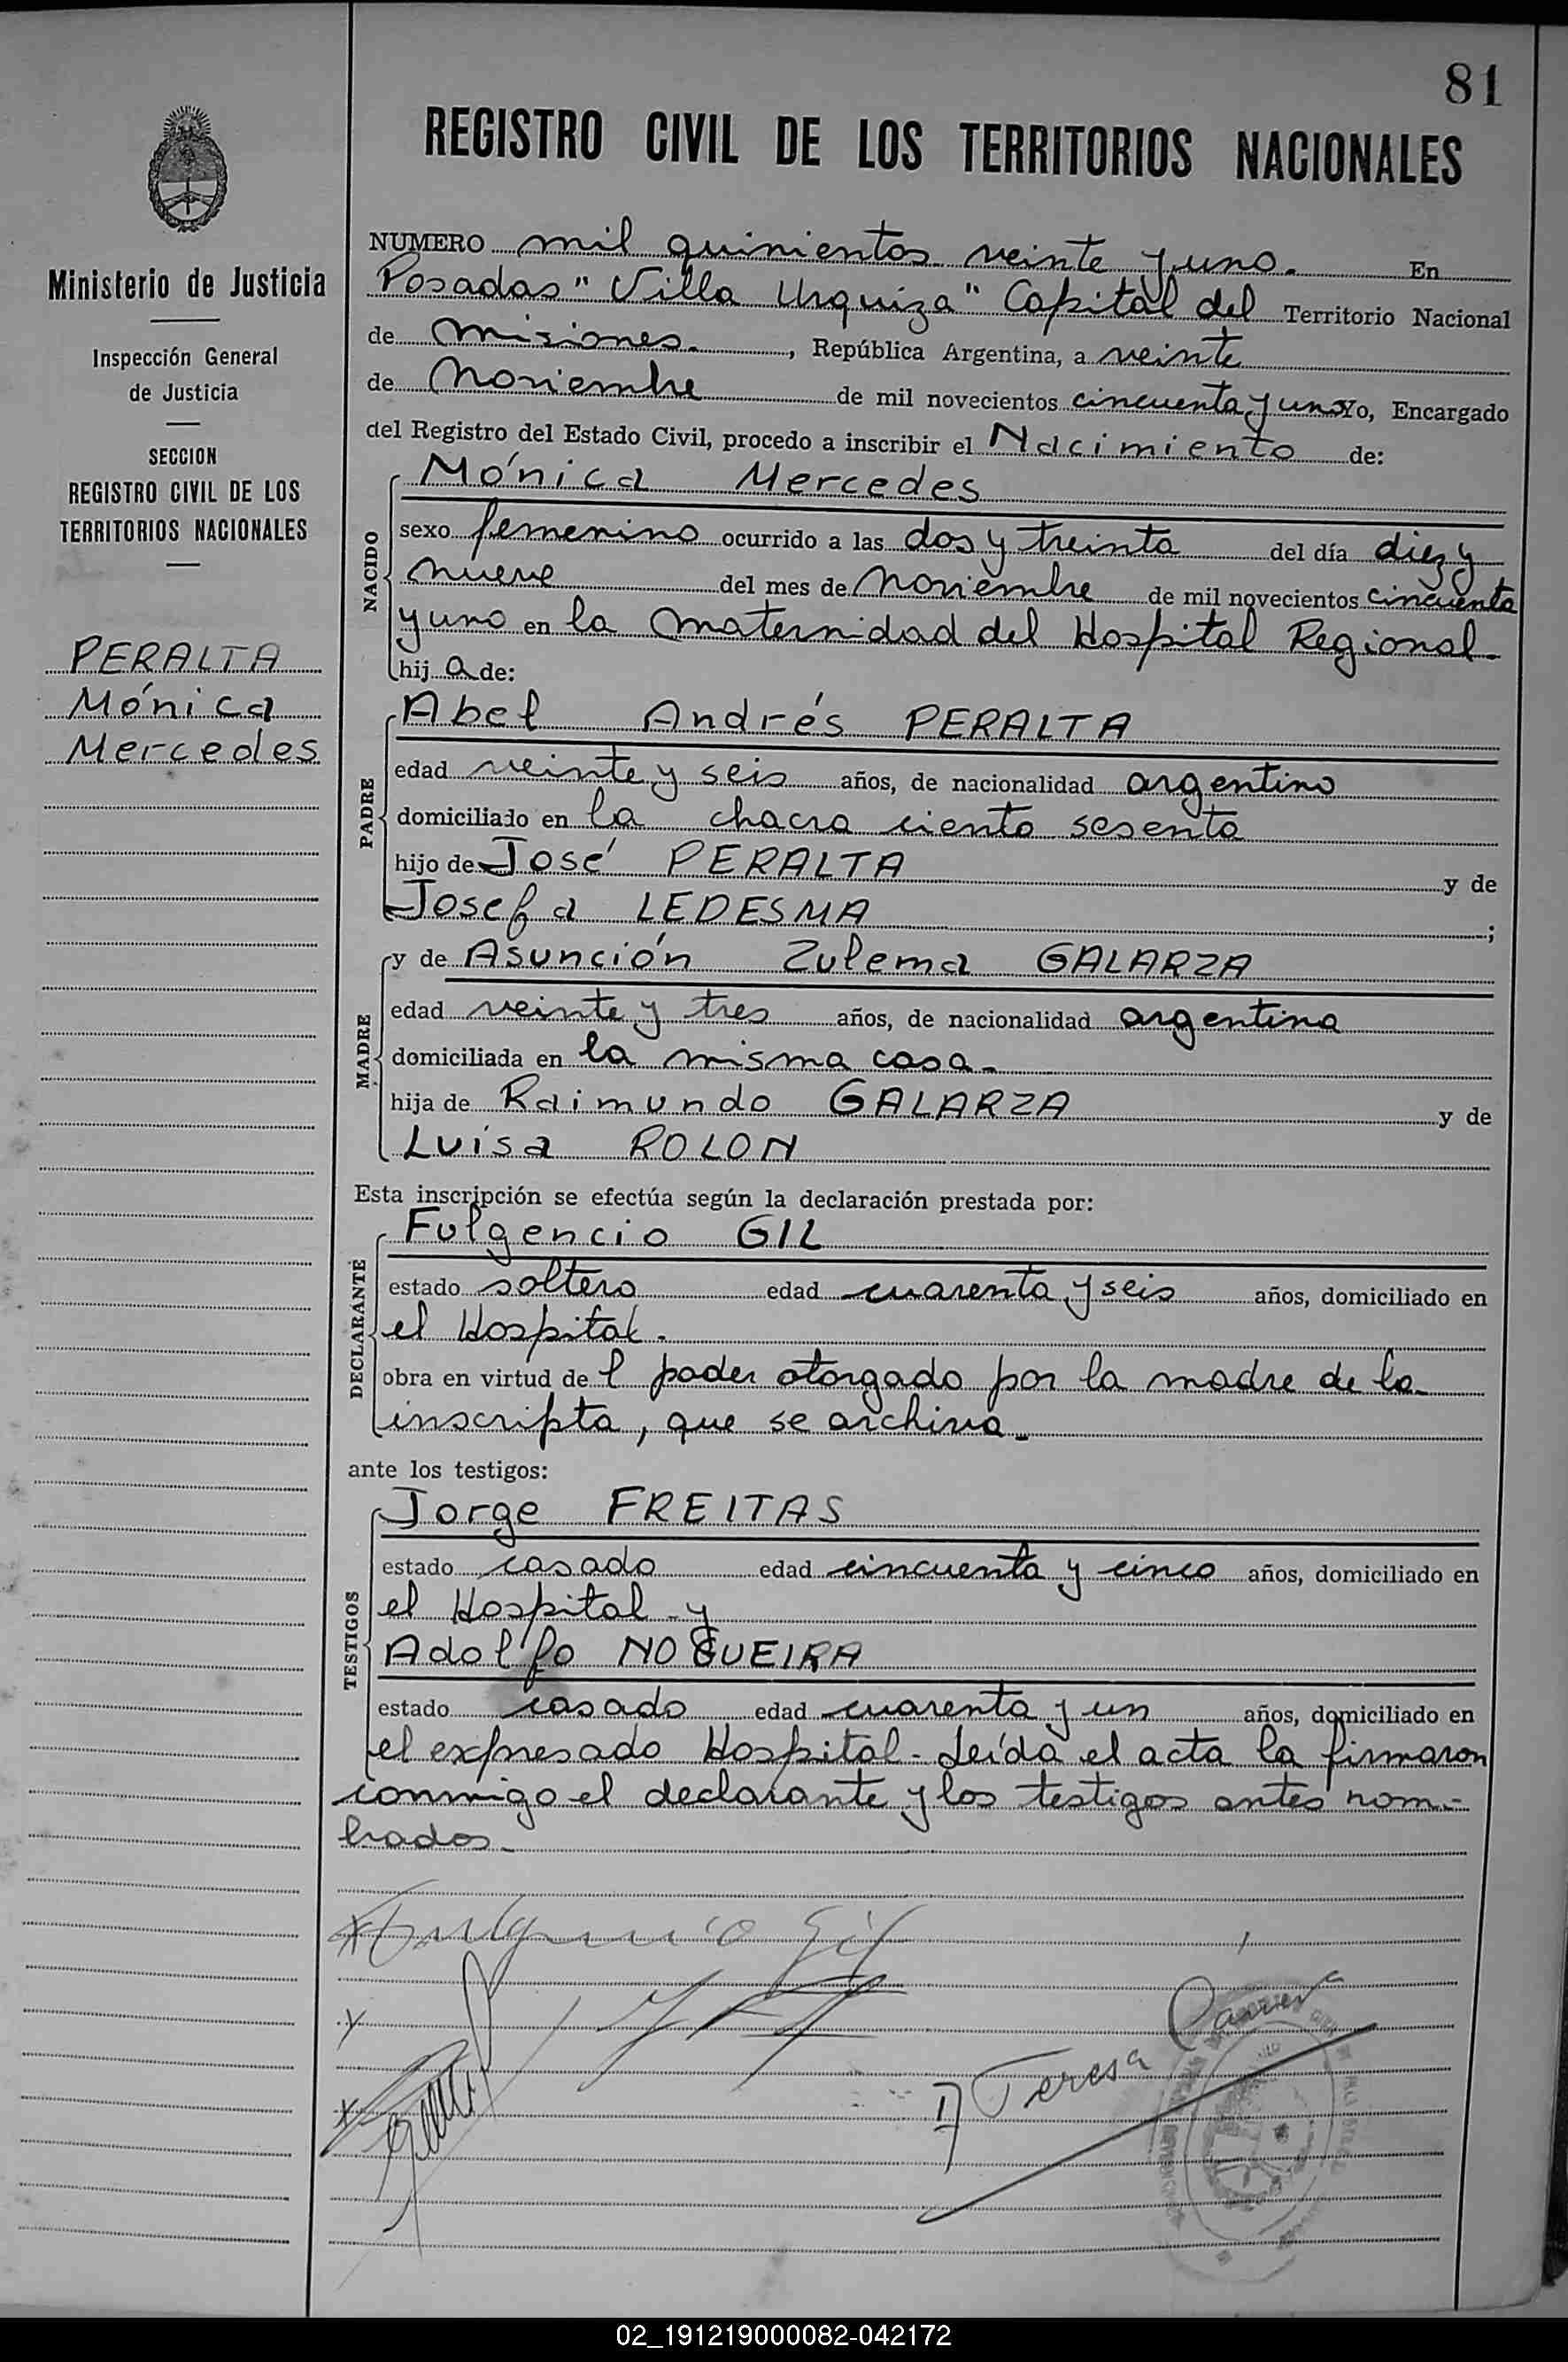 81
REGISTRO CIVIL DE LOS TERRITORIOS NACIONALES
Ministerio de Justicia
Inspección General
de Justicia
SECCION
REGISTRO CIVIL DE LOS
TERRITORIOS NACIONALES
PERALTA
Mónica
Mercedes
NUMERO mil quinientos veinte y uno. En
Posadas "Villa Urquiza" Capital del Territorio Nacional
de Misiones. , República Argentina, a veinte
de Noviembre de mil novecientos cincuenta y uno Yo, Encargado
del Registro del Estado Civil, procedo a inscribir el Nacimiento de:
NACIDO
Mónica Mercedes
sexo femenino ocurrido a las dos y treinta del día diez y
nueve del mes de Noviembre de mil novecientos cincuenta
y uno en la Maternidad del Hospital Regional-
hij a de:
PADRE
Abel Andrés PERALTA
edad veinte y seis años, de nacionalidad argentino
domiciliado en la chacra ciento sesenta
hijo de José PERALTA y de
Josefa LEDESMA ;
MADRE
y de Asunción Zulema GALARZA
edad veinte y tres años, de nacionalidad argentina
domiciliada en la misma casa-
hija de Raimundo GALARZA y de
Luisa ROLON
Esta inscripción se efectúa según la declaración prestada por:
DECLARANTE
Fulgencio GIL
estado soltero edad cuarenta y seis años, domiciliado en
el Hospital.
obra en virtud de l poder otorgado por la madre de la
inscripta, que se archiva-
ante los testigos:
TESTIGOS
Jorge FREITAS
estado casado edad cincuenta y cinco años, domiciliado en
el Hospital y
Adolfo NOGUEIRA
estado casado edad cuarenta y un años, domiciliado en
el expresado Hospital- Leída el acta la firmaron
conmigo el declarante y los testigos antes nom-
brados-
Fulgencio Gil
Teresa
02_191219000082-042172